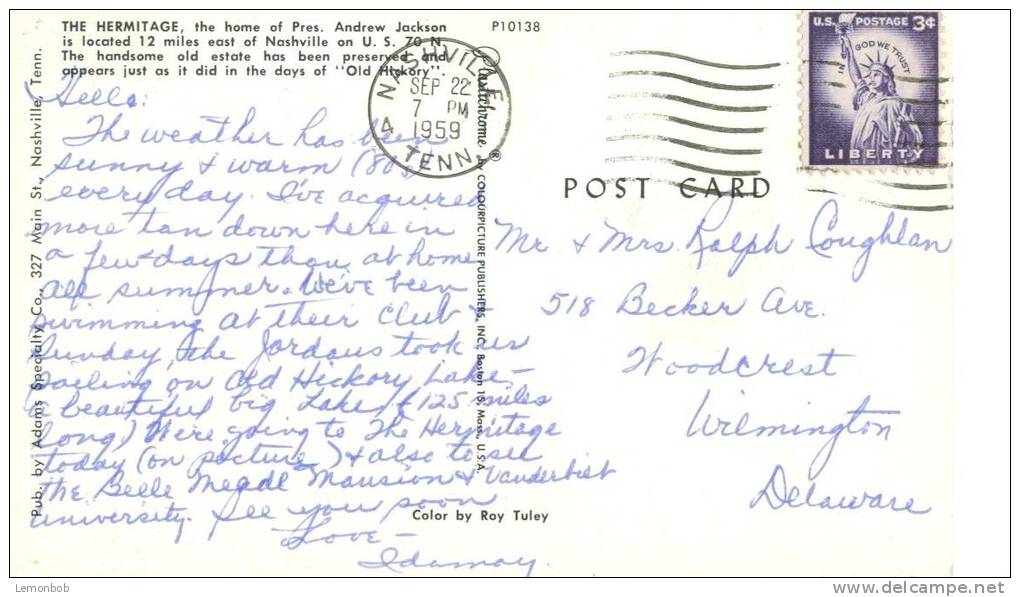 THE HERMITAGE, the home of Pres. Andrew Jackson
is located 12 miles east of Nashville on U. S. 70 N.
The handsome old estate has been preserved and
appears just as it did in the days of "Old Hickory".
P10138
Pub. by Adams Specialty Co., 327 Main St., Nashville, Tenn.
Hello:
The weather has been
sunny & warm (80s)
everyday. I've acquired
more tan down here in
a few days than at home
all summer. We've been
swimming at their club &
Sunday, the Jordans took us
sailing on Old Hickory Lake –
a beautiful big Lake, (125 miles
long) We're going to The Hermitage
today (on picture) & also to see
the Belle Meade Mansion & Vanderbilt
University. See you soon
Love –
Idamay.
Color by Roy Tuley
NASHVILLE
SEP 22
7 PM
1959
4 TENN.
Plastichrome ® by COLOURPICTURE PUBLISHERS, INC., Boston 15, Mass., U.S.A.
U.S. POSTAGE 3¢
IN GOD WE TRUST
LIBERTY
POST CARD
Mr & Mrs Ralph Coughlan
518 Becker Ave.
Woodcrest
Wilmington
Delaware
Lemonbob
delcampe.net